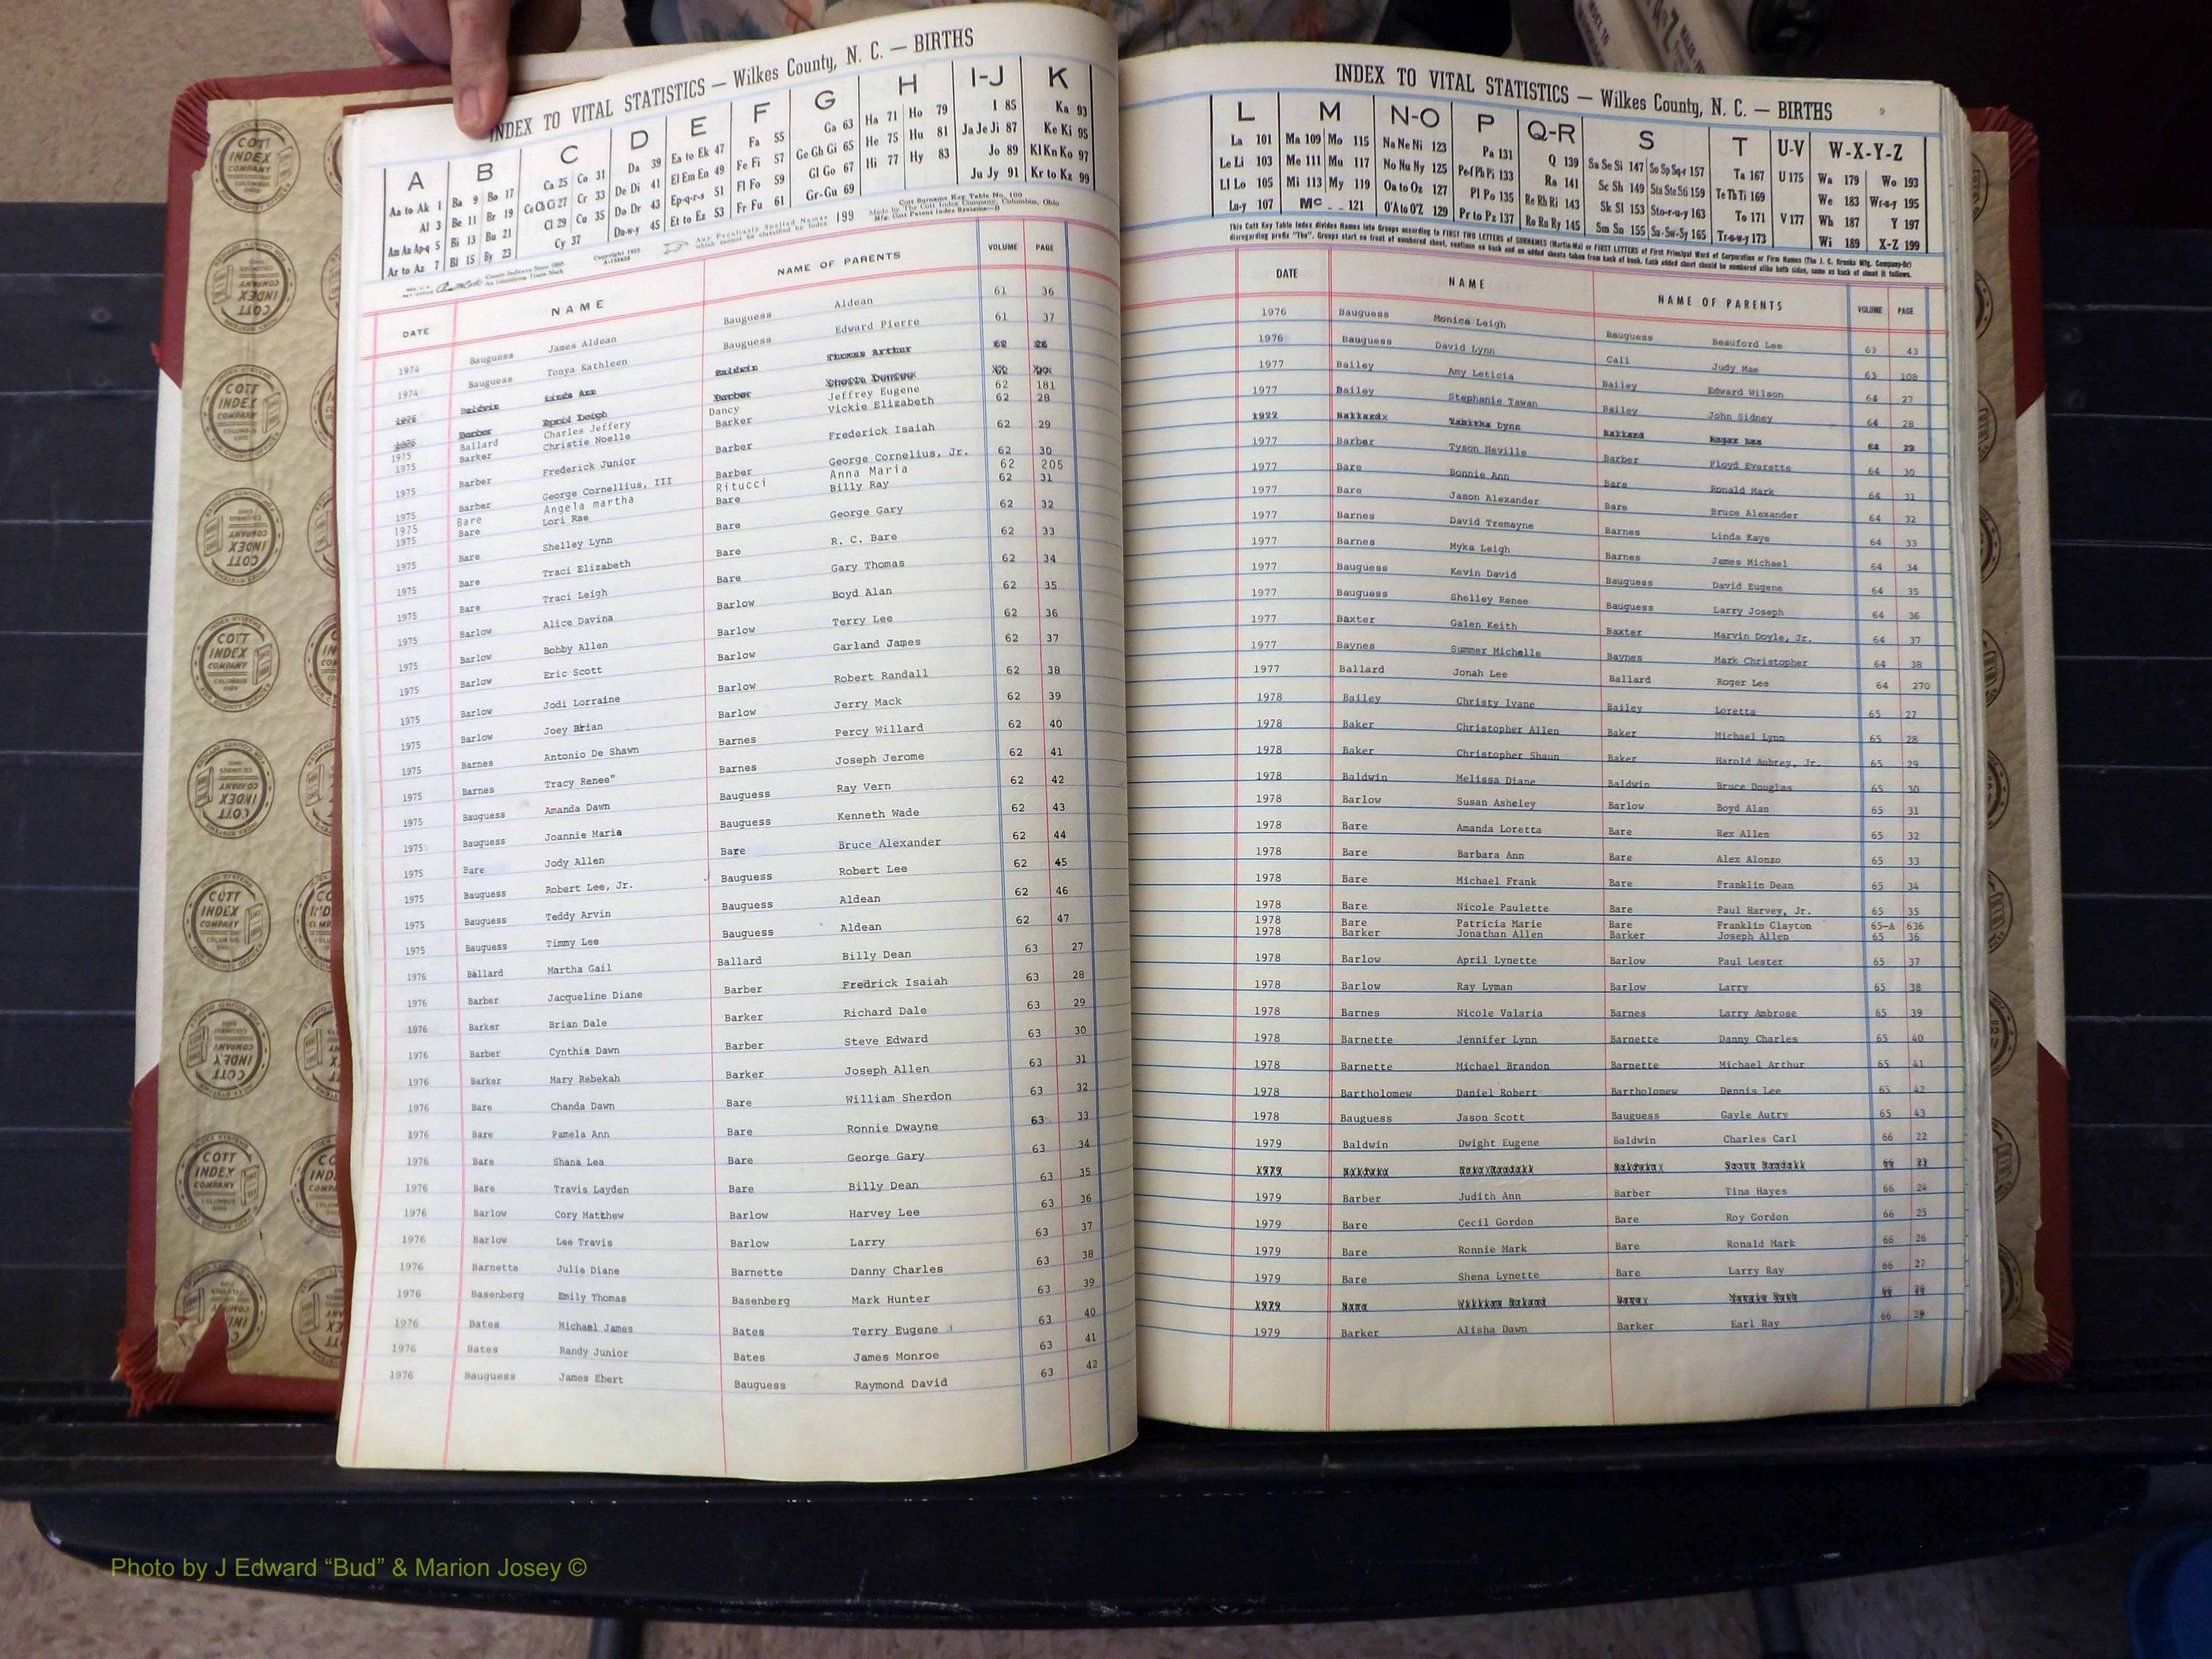 INDEX TO VITAL STATISTICS — Wilkes County, N. C. — BIRTHS
A B C D E F G H I-J K
Aa to Ak 1 Ba 9 Bo 17 Ca 25 Co 31 Da 39 Ea to Ek 47 Fa 55 Ga 63 Ha 71 Ho 79 I 85 Ka 93
Al 3 Be 11 Br 19 Ce Ch Ci 27 Cr 33 De Di 41 El Em En 49 Fe Fi 57 Ge Gh Gi 65 He 75 Hu 81 Ja Je Ji 87 Ke Ki 95
Am An Ap-q 5 Bi 13 Bu 21 Cl 29 Cu 35 Do Dr 43 Ep-q-r-s 51 Fl Fo 59 Gl Go 67 Hi 77 Hy 83 Jo 89 Kl Kn Ko 97
Ar to Az 7 Bl 15 By 23 Cy 37 Du-w-y 45 Et to Ez 53 Fr Fu 61 Gr-Gu 69 Ju Jy 91 Kr to Kz 99
Any Peculiarly Spelled Names which cannot be classified by Index 199
Cott Surname Key Table No. 100
Made by The Cott Index Company, Columbus, Ohio
DATE NAME NAME OF PARENTS VOLUME PAGE
1974 Bauguess James Aldean Bauguess Aldean 61 36
1974 Bauguess Tonya Kathleen Bauguess Edward Pierre 61 37
Baldwin Linda Ann Baldwin Thomas Arthur 62 26
Barber April Leigh Barber
1975 Ballard Charles Jeffery Dancy Jeffrey Eugene 62 181
1975 Barker Christie Noelle Barker Vickie Elizabeth 62 28
1975 Barber Frederick Junior Barber Frederick Isaiah 62 29
1975 Barber George Cornellius, III Barber George Cornelius, Jr. 62 30
1975 Bare Angela martha Ritucci Anna Maria 62 205
1975 Bare Lori Rae Bare Billy Ray 62 31
1975 Bare Shelley Lynn Bare George Gary 62 32
1975 Bare Traci Elizabeth Bare R. C. Bare 62 33
1975 Bare Traci Leigh Bare Gary Thomas 62 34
1975 Barlow Alice Davina Barlow Boyd Alan 62 35
1975 Barlow Bobby Allen Barlow Terry Lee 62 36
1975 Barlow Eric Scott Barlow Garland James 62 37
1975 Barlow Jodi Lorraine Barlow Robert Randall 62 38
1975 Barlow Joey Brian Barlow Jerry Mack 62 39
1975 Barnes Antonio De Shawn Barnes Percy Willard 62 40
1975 Barnes Tracy Renee" Barnes Joseph Jerome 62 41
1975 Bauguess Amanda Dawn Bauguess Ray Vern 62 42
1975 Bauguess Joannie Maria Bauguess Kenneth Wade 62 43
1975 Bare Jody Allen Bare Bruce Alexander 62 44
1975 Bauguess Robert Lee, Jr. Bauguess Robert Lee 62 45
1975 Bauguess Teddy Arvin Bauguess Aldean 62 46
1975 Bauguess Timmy Lee Bauguess Aldean 62 47
1976 Ballard Martha Gail Ballard Billy Dean 63 27
1976 Barber Jacqueline Diane Barber Fredrick Isaiah 63 28
1976 Barker Brian Dale Barker Richard Dale 63 29
1976 Barber Cynthia Dawn Barber Steve Edward 63 30
1976 Barker Mary Rebekah Barker Joseph Allen 63 31
1976 Bare Chanda Dawn Bare William Sherdon 63 32
1976 Bare Pamela Ann Bare Ronnie Dwayne 63 33
1976 Bare Shana Lea Bare George Gary 63 34
1976 Bare Travis Layden Bare Billy Dean 63 35
1976 Barlow Cory Matthew Barlow Harvey Lee 63 36
1976 Barlow Lee Travis Barlow Larry 63 37
1976 Barnette Julie Diane Barnette Danny Charles 63 38
1976 Basenberg Emily Thomas Basenberg Mark Hunter 63 39
1976 Bates Michael James Bates Terry Eugene 63 40
1976 Bates Randy Junior Bates James Monroe 63 41
1976 Bauguess James Ebert Bauguess Raymond David 63 42
INDEX TO VITAL STATISTICS — Wilkes County, N. C. — BIRTHS 9
L M N-O P Q-R S T U-V W-X-Y-Z
La 101 Ma 109 Mo 115 Na Ne Ni 123 Pa 131 Q 139 Sa Se Si 147 So Sp Sq-r 157 Ta 167 U 175 Wa 179 Wo 193
Le Li 103 Me 111 Mu 117 No Nu Ny 125 Pe f Ph Pi 133 Ra 141 Sc Sh 149 Sta Ste Sti 159 Te Th Ti 169 We 183 Wr-u-y 195
Ll Lo 105 Mi 113 My 119 Oa to Oz 127 Pl Po 135 Re Rh Ri 143 Sk Sl 153 Sto-r-u-y 163 To 171 V 177 Wh 187 Y 197
Lu-y 107 Mc 121 O'A to O'Z 129 Pr to Pz 137 Ro Ru Ry 145 Sm Sn 155 Su-Sw-Sy 165 Tr-u-w-y 173 Wi 189 X-Z 199
This Cott Key Table Index divides Names into Groups according to FIRST TWO LETTERS of SURNAMES (Martin-Ma) or FIRST LETTERS of First Principal Word of Corporation or Firm Names (The J. C. Brooks Mfg. Company-Br)
disregarding prefix "The". Groups start on front of numbered sheet, continue on back and on added sheets taken from back of book. Each added sheet should be numbered alike both sides, same as back of sheet it follows.
DATE NAME NAME OF PARENTS VOLUME PAGE
1976 Bauguess Monica Leigh Bauguess Beauford Lee 63 43
1976 Bauguess David Lynn Call Judy Mae 63 108
1977 Bailey Amy Leticia Bailey Edward Wilson 64 27
1977 Bailey Stephanie Tawan Bailey John Sidney 64 28
Ballard Lynn Ballard Roger Lee 64 29
1977 Barber Tyson Neville Barber Floyd Everette 64 30
1977 Bare Bonnie Ann Bare Ronald Mark 64 31
1977 Bare Jason Alexander Bare Bruce Alexander 64 32
1977 Barnes David Tremayne Barnes Linda Kaye 64 33
1977 Barnes Myka Leigh Barnes James Michael 64 34
1977 Bauguess Kevin David Bauguess David Eugene 64 35
1977 Bauguess Shelley Renee Bauguess Larry Joseph 64 36
1977 Baxter Galen Keith Baxter Marvin Doyle, Jr. 64 37
1977 Baynes Summer Michelle Baynes Mark Christopher 64 38
1977 Ballard Jonah Lee Ballard Roger Lee 64 270
1978 Bailey Christy Ivane Bailey Loretta 65 27
1978 Baker Christopher Allen Baker Michael Lynn 65 28
1978 Baker Christopher Shaun Baker Harold Aubrey, Jr. 65 29
1978 Baldwin Melissa Diane Baldwin Bruce Douglas 65 30
1978 Barlow Susan Asheley Barlow Boyd Alan 65 31
1978 Bare Amanda Loretta Bare Rex Allen 65 32
1978 Bare Barbara Ann Bare Alex Alonzo 65 33
1978 Bare Michael Frank Bare Franklin Dean 65 34
1978 Bare Nicole Paulette Bare Paul Harvey, Jr. 65 35
1978 Bare Patricia Marie Bare Franklin Clayton 65-A 636
1978 Barker Jonathan Allen Barker Joseph Allen 65 36
1978 Barlow April Lynette Barlow Paul Lester 65 37
1978 Barlow Ray Lyman Barlow Larry 65 38
1978 Barnes Nicole Valaria Barnes Larry Ambrose 65 39
1978 Barnette Jennifer Lynn Barnette Danny Charles 65 40
1978 Barnette Michael Brandon Barnette Michael Arthur 65 41
1978 Bartholomew Daniel Robert Bartholomew Dennis Lee 65 42
1978 Bauguess Jason Scott Bauguess Gayle Autry 65 43
1979 Baldwin Dwight Eugene Baldwin Charles Carl 66 22
1979 Barber Judith Ann Barber Tina Hayes 66 24
1979 Bare Cecil Gordon Bare Roy Gordon 66 25
1979 Bare Ronnie Mark Bare Ronald Mark 66 26
1979 Bare Shena Lynette Bare Larry Ray 66 27
1979 Barker Alisha Dawn Barker Earl Ray 66 29
Photo by J Edward “Bud” & Marion Josey ©